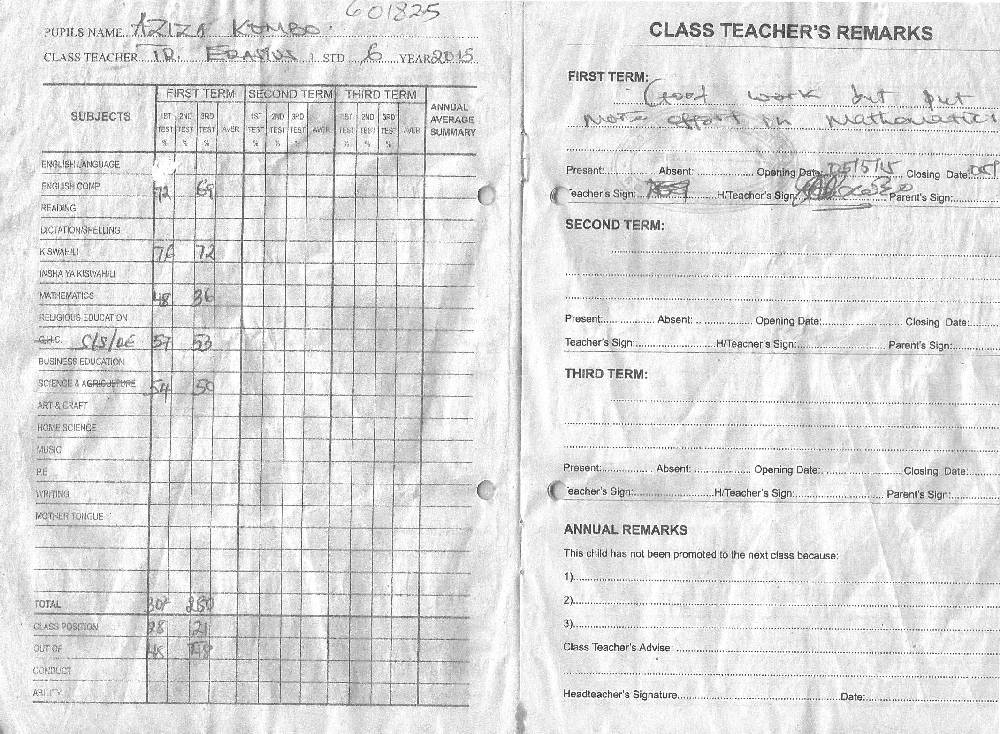 601825
PUPILS NAME AZIZA KOMBO
CLASS TEACHER TR. ERASTUS STD 6 YEAR 2015
SUBJECTS FIRST TERM SECOND TERM THIRD TERM ANNUAL AVERAGE SUMMARY
1ST TEST % 2ND TEST % 3RD TEST % AVER 1ST TEST % 2ND TEST % 3RD TEST % AVER 1ST TEST % 2ND TEST % 3RD TEST % AVER
ENGLISH LANGUAGE
ENGLISH COMP 72 69
READING
DICTATION/SPELLING
KISWAHILI 76 72
INSHA YA KISWAHILI
MATHEMATICS 48 36
RELIGIOUS EDUCATION
G.H.C. 57 53
BUSINESS EDUCATION
SCIENCE & AGRICULTURE 54 50
ART & CRAFT
HOME SCIENCE
MUSIC
P.E
WRITING
MOTHER TONGUE
TOTAL 307
CLASS POSITION 28 21
OUT OF 48
CONDUCT
ABILITY
CLASS TEACHER'S REMARKS
FIRST TERM:
Good work but put
more effort in Mathematics
Present: Absent: Opening Date: 05/5/15 Closing Date:
Teacher's Sign: H/Teacher's Sign: Parent's Sign:
SECOND TERM:
Present: Absent: Opening Date: Closing Date:
Teacher's Sign: H/Teacher's Sign: Parent's Sign:
THIRD TERM:
Present: Absent: Opening Date: Closing Date:
Teacher's Sign: H/Teacher's Sign: Parent's Sign:
ANNUAL REMARKS
This child has not been promoted to the next class because:
1)
2)
3)
Class Teacher's Advise
Headteacher's Signature Date: